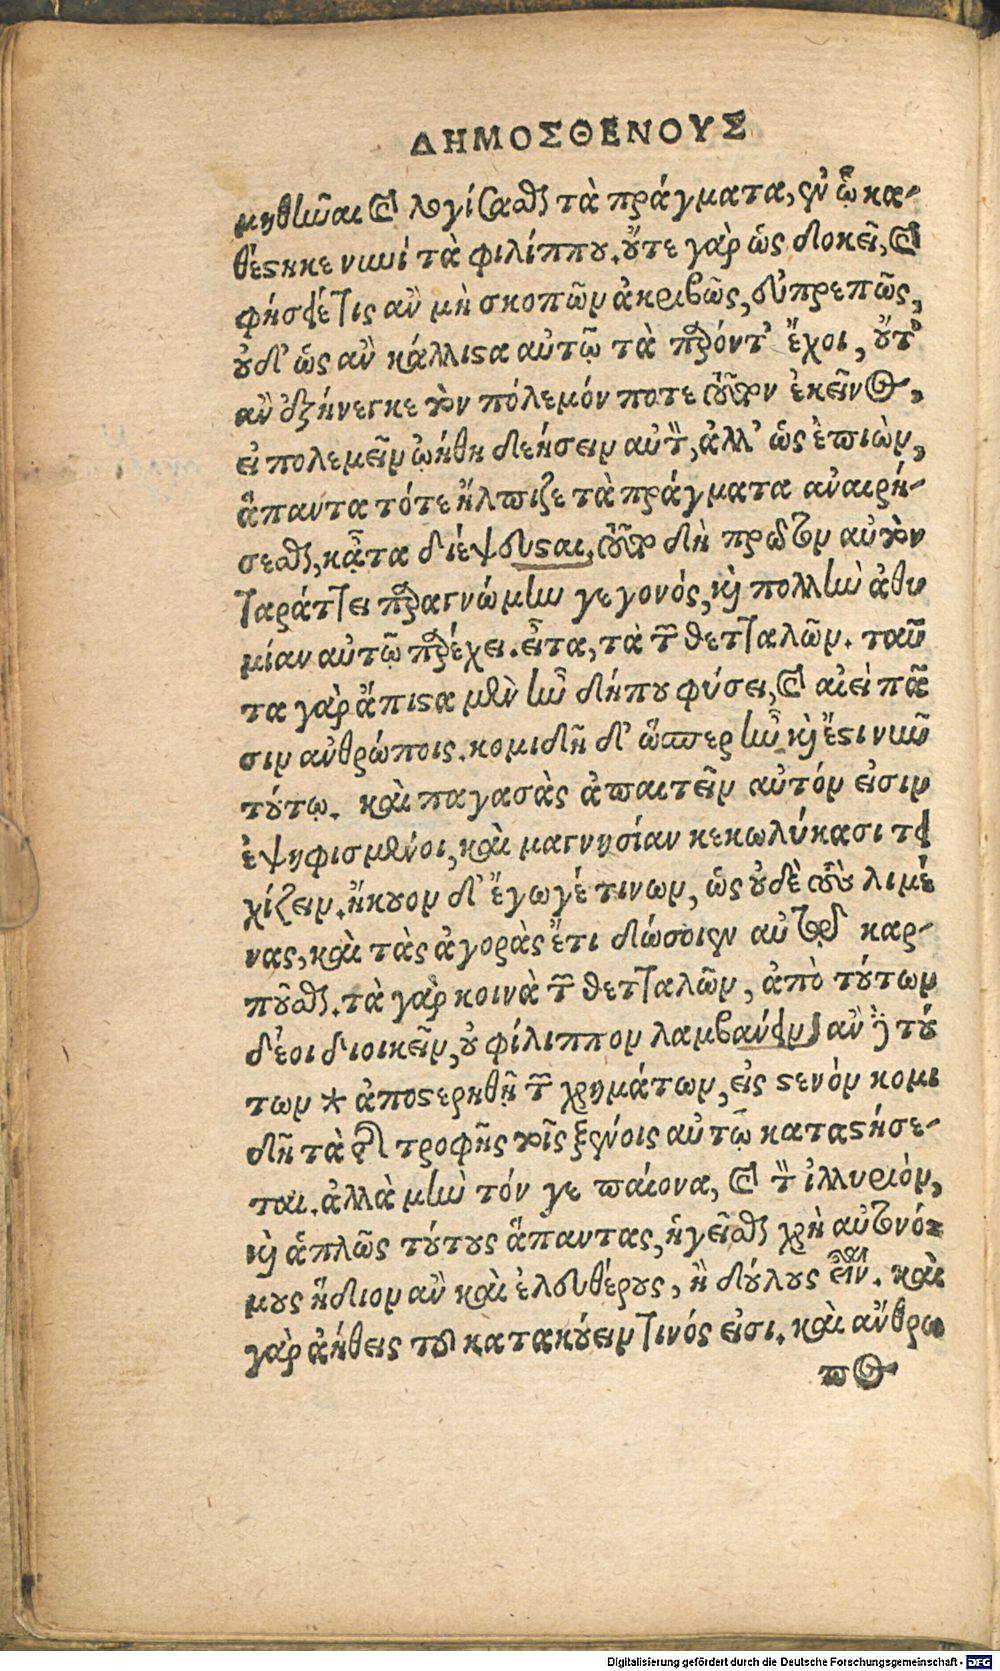 ΔΗΜΟΣΘΕΝΟΥΣ
μηθῆναι καὶ λογίσασθαι τὰ πράγματα, ἐν ᾧ κα-
θέστηκε νυνὶ τὰ φιλίππου. οὔτε γὰρ ὡς δοκεῖ, καὶ
φήσειέ τις ἂν μὴ σκοπῶν ἀκριβῶς, εὐπρεπῶς,
οὐδ' ὡς ἂν κάλλιστα αὐτῷ τὰ παρόντ' ἔχοι, οὔτ'
ἂν ἐξήνεγκε τὸν πόλεμόν ποτε τοῦτον ἐκεῖνος,
εἰ πολεμεῖν ᾠήθη δεήσειν αὐτὸν, ἀλλ' ὡς ἐπιὼν,
ἅπαντα τότε ἤλπιζε τὰ πράγματα ἀναιρή-
σεσθαι, κᾆτα διέψευσται. τοῦτο δὴ πρῶτον αὐτὸν
ταράττει παραγνώμην γεγονός, καὶ πολλὴν ἀθυ
μίαν αὐτῷ παρέχει. εἶτα, τὰ τῶν θετταλῶν. ταῦ
τα γὰρ ἄπιστα μὲν ἦν δήπου φύσει, καὶ αἰεὶ πᾶ
σιν ἀνθρώποις. κομιδῆ δ' ὥσπερ ἦν καὶ ἔστι νῦν
τούτῳ. καὶ παγασὰς ἀπαιτεῖν αὐτόν εἰσιν
ἐψηφισμένοι, καὶ μαγνησίαν κεκωλύκασι τει
χίζειν. ἤκουον δ' ἔγωγέ τινων, ὡς οὐδὲ τοὺς λιμέ
νας, καὶ τὰς ἀγορὰς ἔτι δώσοιεν αὐτῷ καρ-
ποῦσθαι. τὰ γὰρ κοινὰ τῶν θετταλῶν, ἀπὸ τούτων
δέοι διοικεῖν, οὐ φίλιππον λαμβάνειν, ἂν δὲ τού
των * ἀποστερηθῇ τῶν χρημάτων, εἰς στενὸν κομι
δῆ τὰ τῆς τροφῆς τοῖς ξένοις αὐτῷ καταστήσε-
ται. ἀλλὰ μὴν τόν γε παίονα, καὶ τὸν ἰλλυριὸν,
καὶ ἁπλῶς τούτους ἅπαντας, ἡγεῖσθαι χρὴ αὐτονό-
μους ἥδιον ἂν καὶ ἐλευθέρους, ἢ δούλους εἶναι. καὶ
γὰρ ἀήθεις τοῦ κατακούειν τινός εἰσι. καὶ ἄνθρω
πος